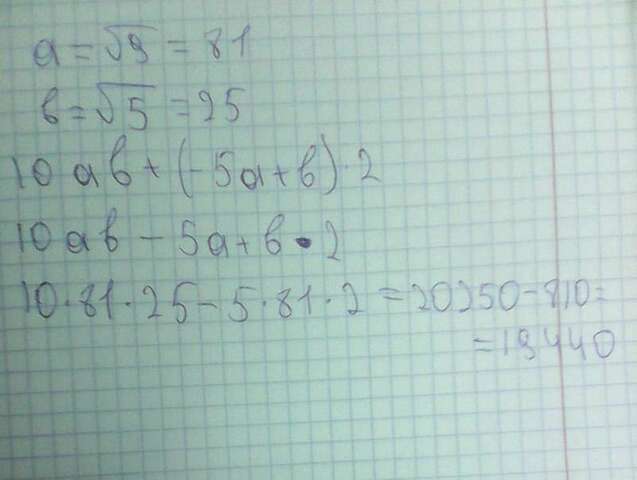 a = √9 = 81
в = √5 = 25
10 ав + (-5а + в) · 2
10 ав - 5а + в · 2
10 · 81 · 25 - 5 · 81 · 2 = 20250 - 810 =
= 19440